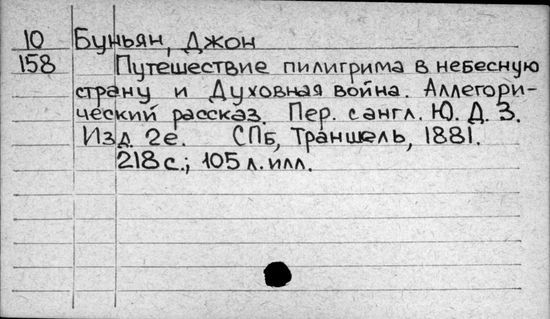 10 Буньян, Джон
158 Путешествие пилигрима в небесную
страну и Духовная война. Аллегори-
ческий рассказ. Пер. с англ. Ю. Д. З.
Изд. 2е. СПб, Траншель, 1881.
218 с.; 105 л. илл.